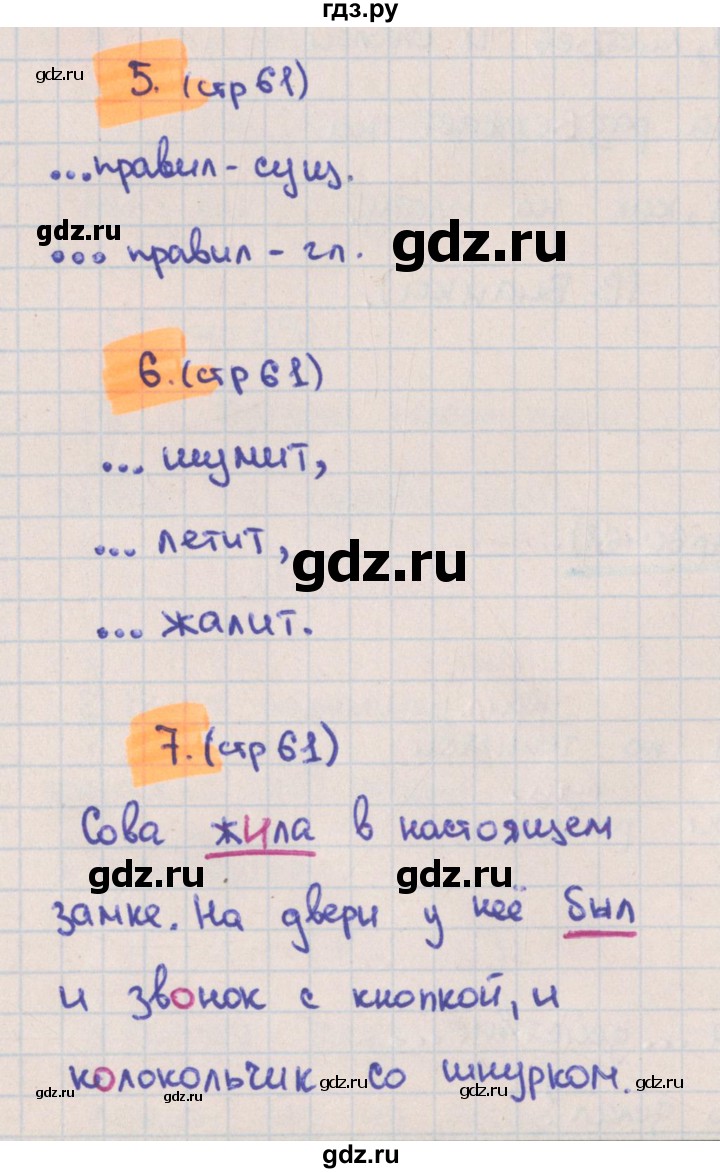 гдз.ру
gdz.ru
5. (стр 61)
...правил - сущ.
gdz.ru
gdz.ru
... правил - гл.
6. (стр 61)
... шумит,
... летит,
gdz.ru
... жалит.
7. (стр 61)
Сова жила в настоящем
gdz.ru
gdz.ru
замке. На двери у неё был
и звонок с кнопкой, и
колокольчик со шнурком.
gdz.ru
gdz.ru
gdz.ru
gdz.ru
gdz.ru
gdz.ru